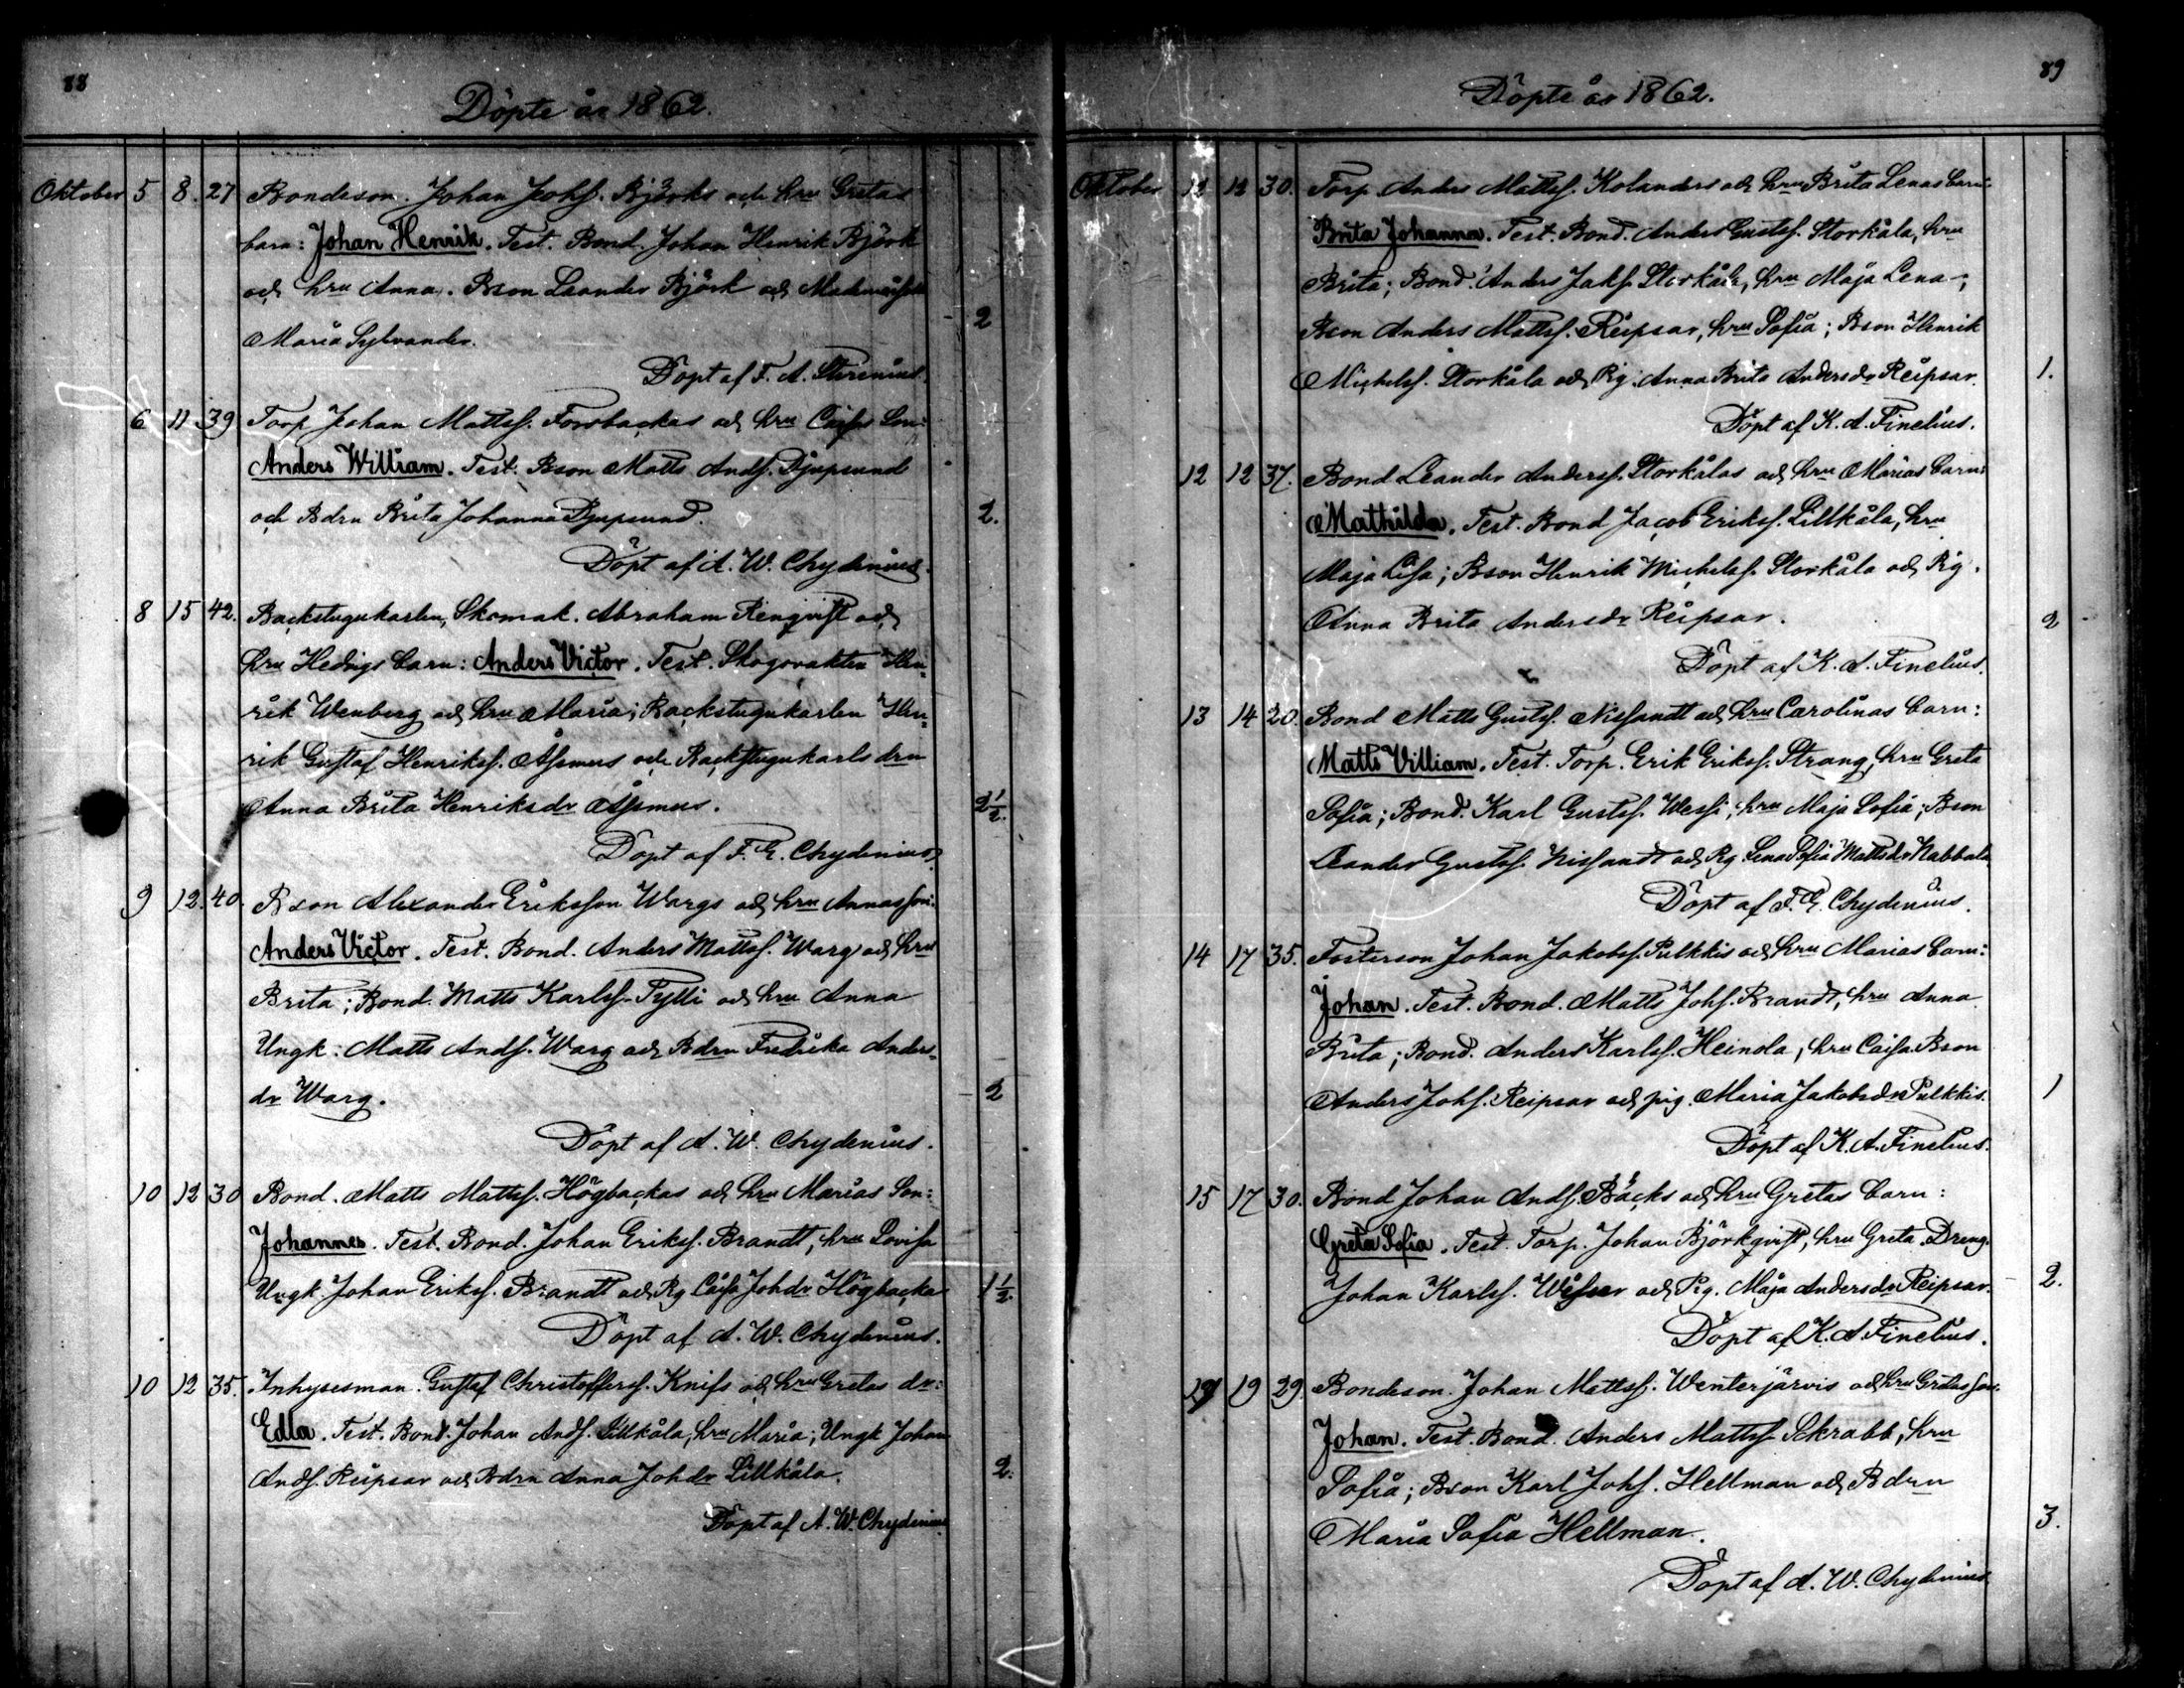 88
Döpte år 1862.
Oktober 5 8. 27 Bondeson. Johan Johs. Björks och hru Gretas
barn: Johan Henrik. Test. Bond. Johan Henrik Björk
och hru Anna. Bson Leander Björk och
Maria Sylvander. 2
Döpt af F. A. Stirenius.
6 11 39 Torp Johan Mattss. Forsbackas och hru Caisas Son:
Anders William. Test. Bson Matts Ands. Djupsund
och Bdrn Brita Johanna Djupsund. 2.
Döpt af A. W. Chydenius.
8 15 42. Backstugukarlen, Skomak. Abraham Renqvist och
hru Hedvigs barn: Anders Victor. Test. Skogsvakten Hen-
rik Wenberg och hru Maria; Backstugukarlen Hen-
rik Gustaf Henrikss. Åssmus och Backstugukarls drn
Anna Brita Henriksdr Åssmus. 2 1/2.
Döpt af F. E. Chydenius.
9 12. 40. Bson Alexander Eriksson Wargs och hru Annas son:
Anders Victor. Test. Bond. Anders Mattss. Warg och hru
Brita; Bond. Matts Karlss. Tylli och hru Anna
Ungk: Matts Ands. Warg och Bdrn Fredrika Anders-
dr Warg. 2
Döpt af A. W. Chydenius.
10 12 30 Bond. Matts Mattss. Högbackas och hru Marias Son:
Johannes. Test. Bond. Johan Erikss. Brandt, hru Lovisa
Ungk. Johan Erikss. Brandt och Pig Caisa Johdr Högbacka 1 1/2.
Döpt af A. W. Chydenius.
10 12 35. Inhysesman. Gustaf Christofferss. Knifs och hru Gretas dr:
Edla. Test. Bond. Johan Ands. Lillkåla, hru Maria; Ungk Johan
Ands. Reipsar och Bdrn Anna Johdr Lillkåla. 2.
Döpt af A. W. Chydenius
89
Döpte år 1862.
Oktober 12 12 30. Torp. Anders Mattss. Kolanders och hru Brita Lenas barn:
Brita Johanna. Test. Bond. Anders Gustss. Storkåla, hru
Brita; Bond. Anders Jaks. Storkåla, hru Maja Lena;
Bson Anders Mattss. Reipsar, hru Sofia; Bson Henrik
Michelss. Storkåla och Pig. Anna Brita Andersdr Reipsar. 1.
Döpt af K. A. Finelius.
12 12 37. Bond Leander Anderss. Storkålas och hru Marias barn:
Mathilda. Test. Bond Jacob Erikss. Lillkåla, hru
Maja Lisa; Bson Henrik Michelss. Storkåla och Pig.
Anna Brita Andersdr Reipsar. 2
Döpt af K. A. Finelius.
13 14 20. Bond Matts Gustss. Nissandt och hru Carolinas barn:
Matts Villiam. Test. Torp. Erik Erikss. Strang, hru Greta
Sofia; Bond. Karl Gustss. Wessi, hru Maja Sofia; Bson
Leander Gustss. Nissandt och Pig Lena Sofia Mattsdr Nabbala
Döpt af F. E. Chydenius.
14 17 35. Fosterson Johan Jakobss. Pulkkis och hru Marias barn:
Johan. Test. Bond. Matts Johs. Brandt, hru Anna
Brita; Bond. Anders Karlss. Heinola, hru Caisa. Bson
Anders Johs. Reipsar och pig. Maria Jakobsdr Pulkkis. 1
Döpt af K. A. Finelius.
15 17 30. Bond Johan Ands. Bäcks och hru Gretas barn:
Greta Sofia. Test. Torp. Johan Björkqvist, hru Greta. Dreng.
Johan Karlss. och Pig. Maja Andersdr Reipsar. 2.
Döpt af K. A. Finelius.
19 29 Bondeson. Johan Mattss. Wenterjärvis och hru Gretas son:
Johan. Test. Bond. Anders Mattss. Skrabb, hru
Sofia; Bson Karl Johs. Hellman och Bdrn
Maria Sofia Hellman. 3.
Döpt af A. W. Chydenius